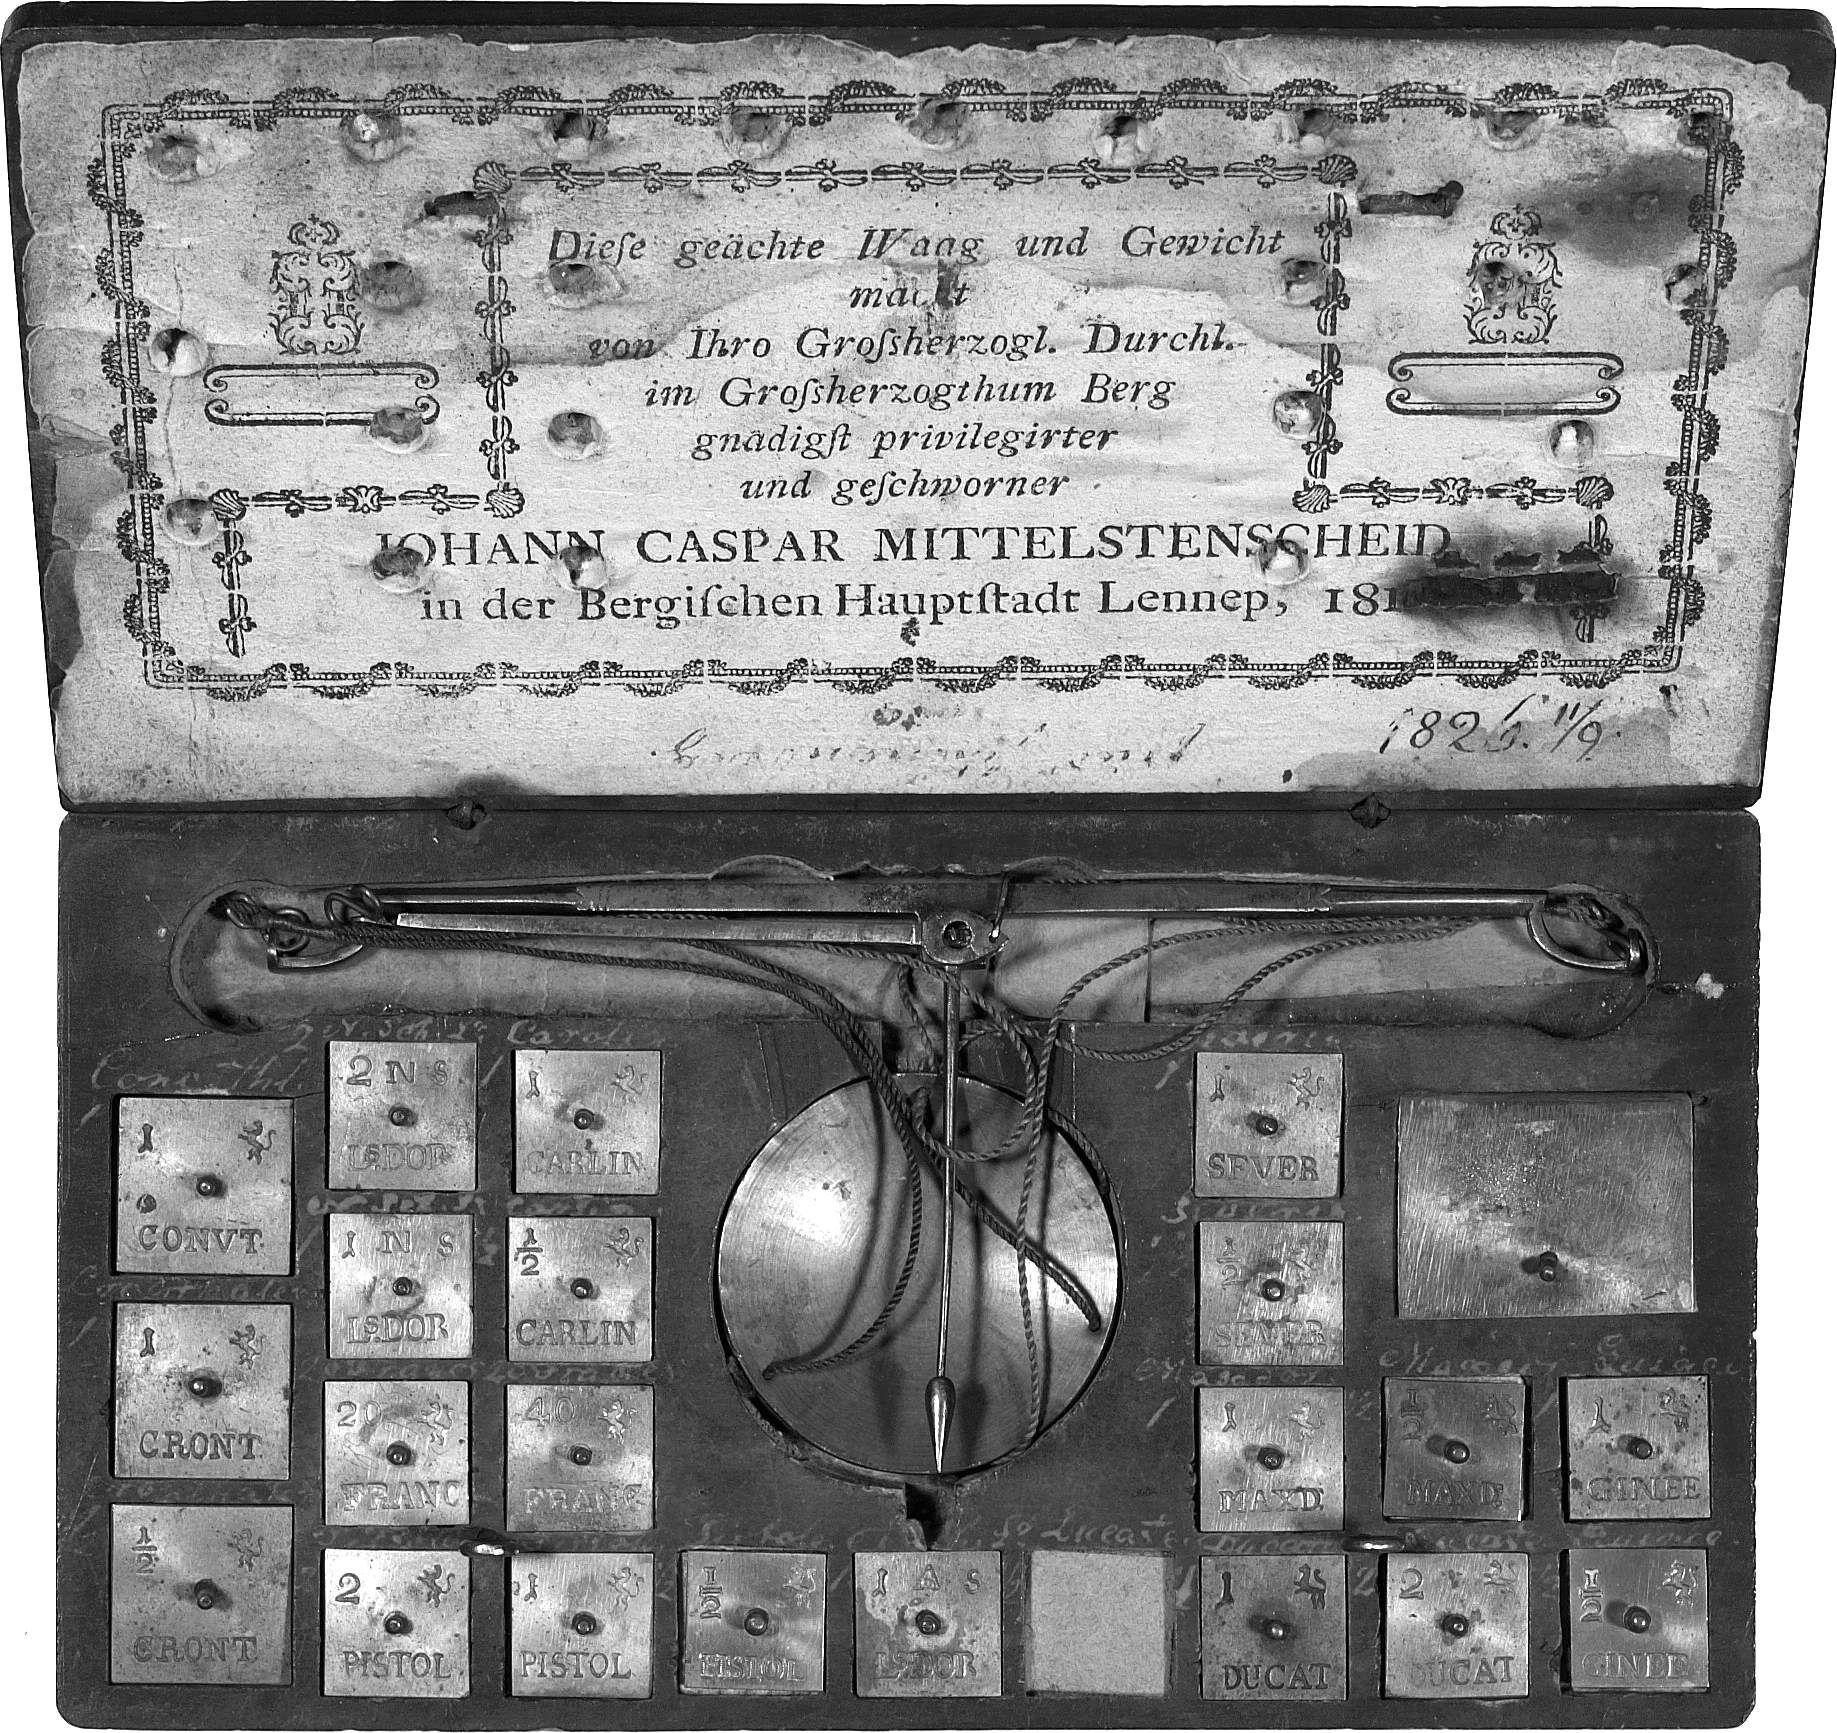 Dieſe geächte Waag und Gewicht
macht
von Ihro Groſsherzogl. Durchl.
im Groſsherzogthum Berg
gnädigſt privilegirter
und geſchworner
JOHANN CASPAR MITTELSTENSCHEID
in der Bergiſchen Hauptſtadt Lennep, 181
1826. 11/9.
2 N. Sch. Ls Carolin
2 N S
LS.DOR
1
CARLIN
1
SEVER
1
CONVT.
1 N S
LS.DOR
1/2
CARLIN
1/2
SEVER
1
CRONT.
20
FRANC
40
FRANC
1
MAXD.
1/2
MAXD.
1
GINEE
1/2
CRONT.
2
PISTOL
1
PISTOL
1/2
PISTOL
1 A S
LS.DOR
1
DUCAT
2
DUCAT
1/2
GINEE